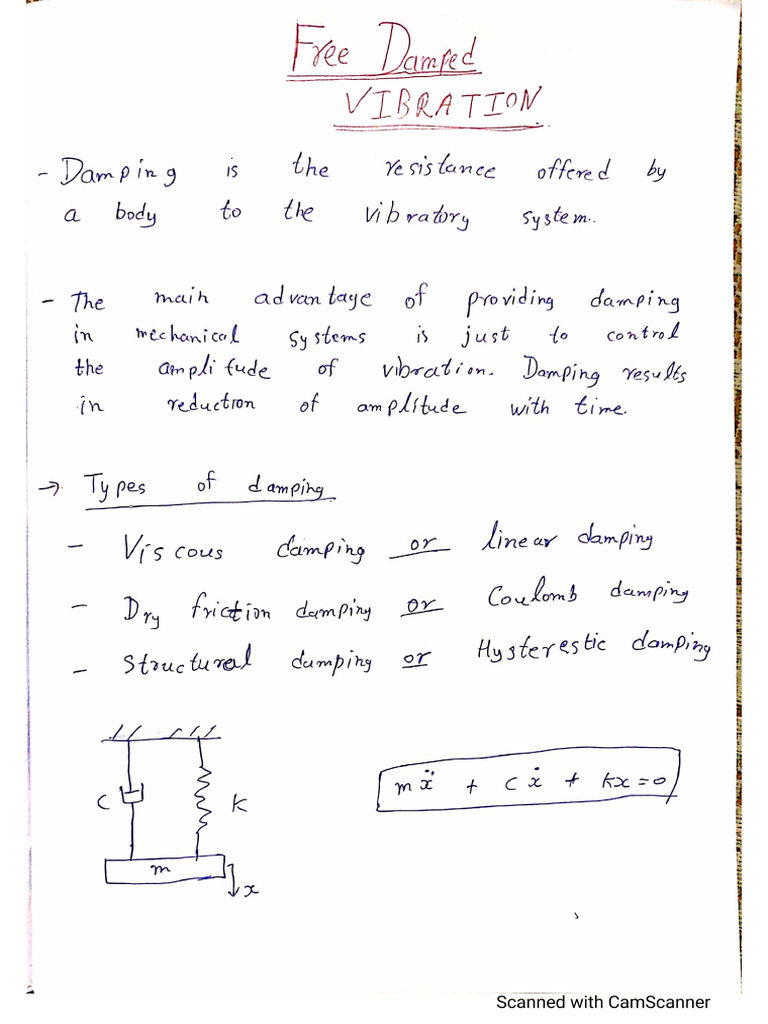 Free Damped
VIBRATION
- Damping is the resistance offered by
a body to the vibratory system..
- The main advantage of providing damping
in mechanical systems is just to control
the amplitude of vibration. Damping results
in reduction of amplitude with time.
→ Types of damping
- Viscous damping or linear damping
- Dry friction damping or Coulomb damping
- Structural damping or Hysterestic damping
C
K
m
x
mẍ + cẋ + kx = 0
Scanned with CamScanner